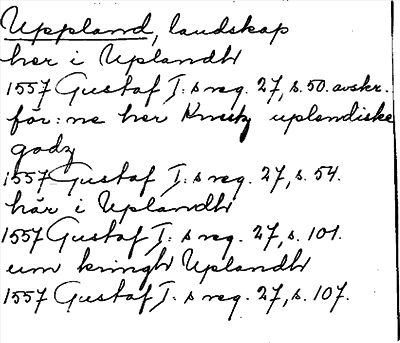 Uppland, landskap
her i Uplandh
1557 Gustaf I: s reg. 27, s. 50. avskr.
för:ne her Knutz uplendiske
godz
1557 Gustaf I: s reg. 27, s. 54.
här i Uplandh
1557 Gustaf I: s reg. 27, s. 101.
um kringh Uplandh
1557 Gustaf I: s reg. 27, s. 107.